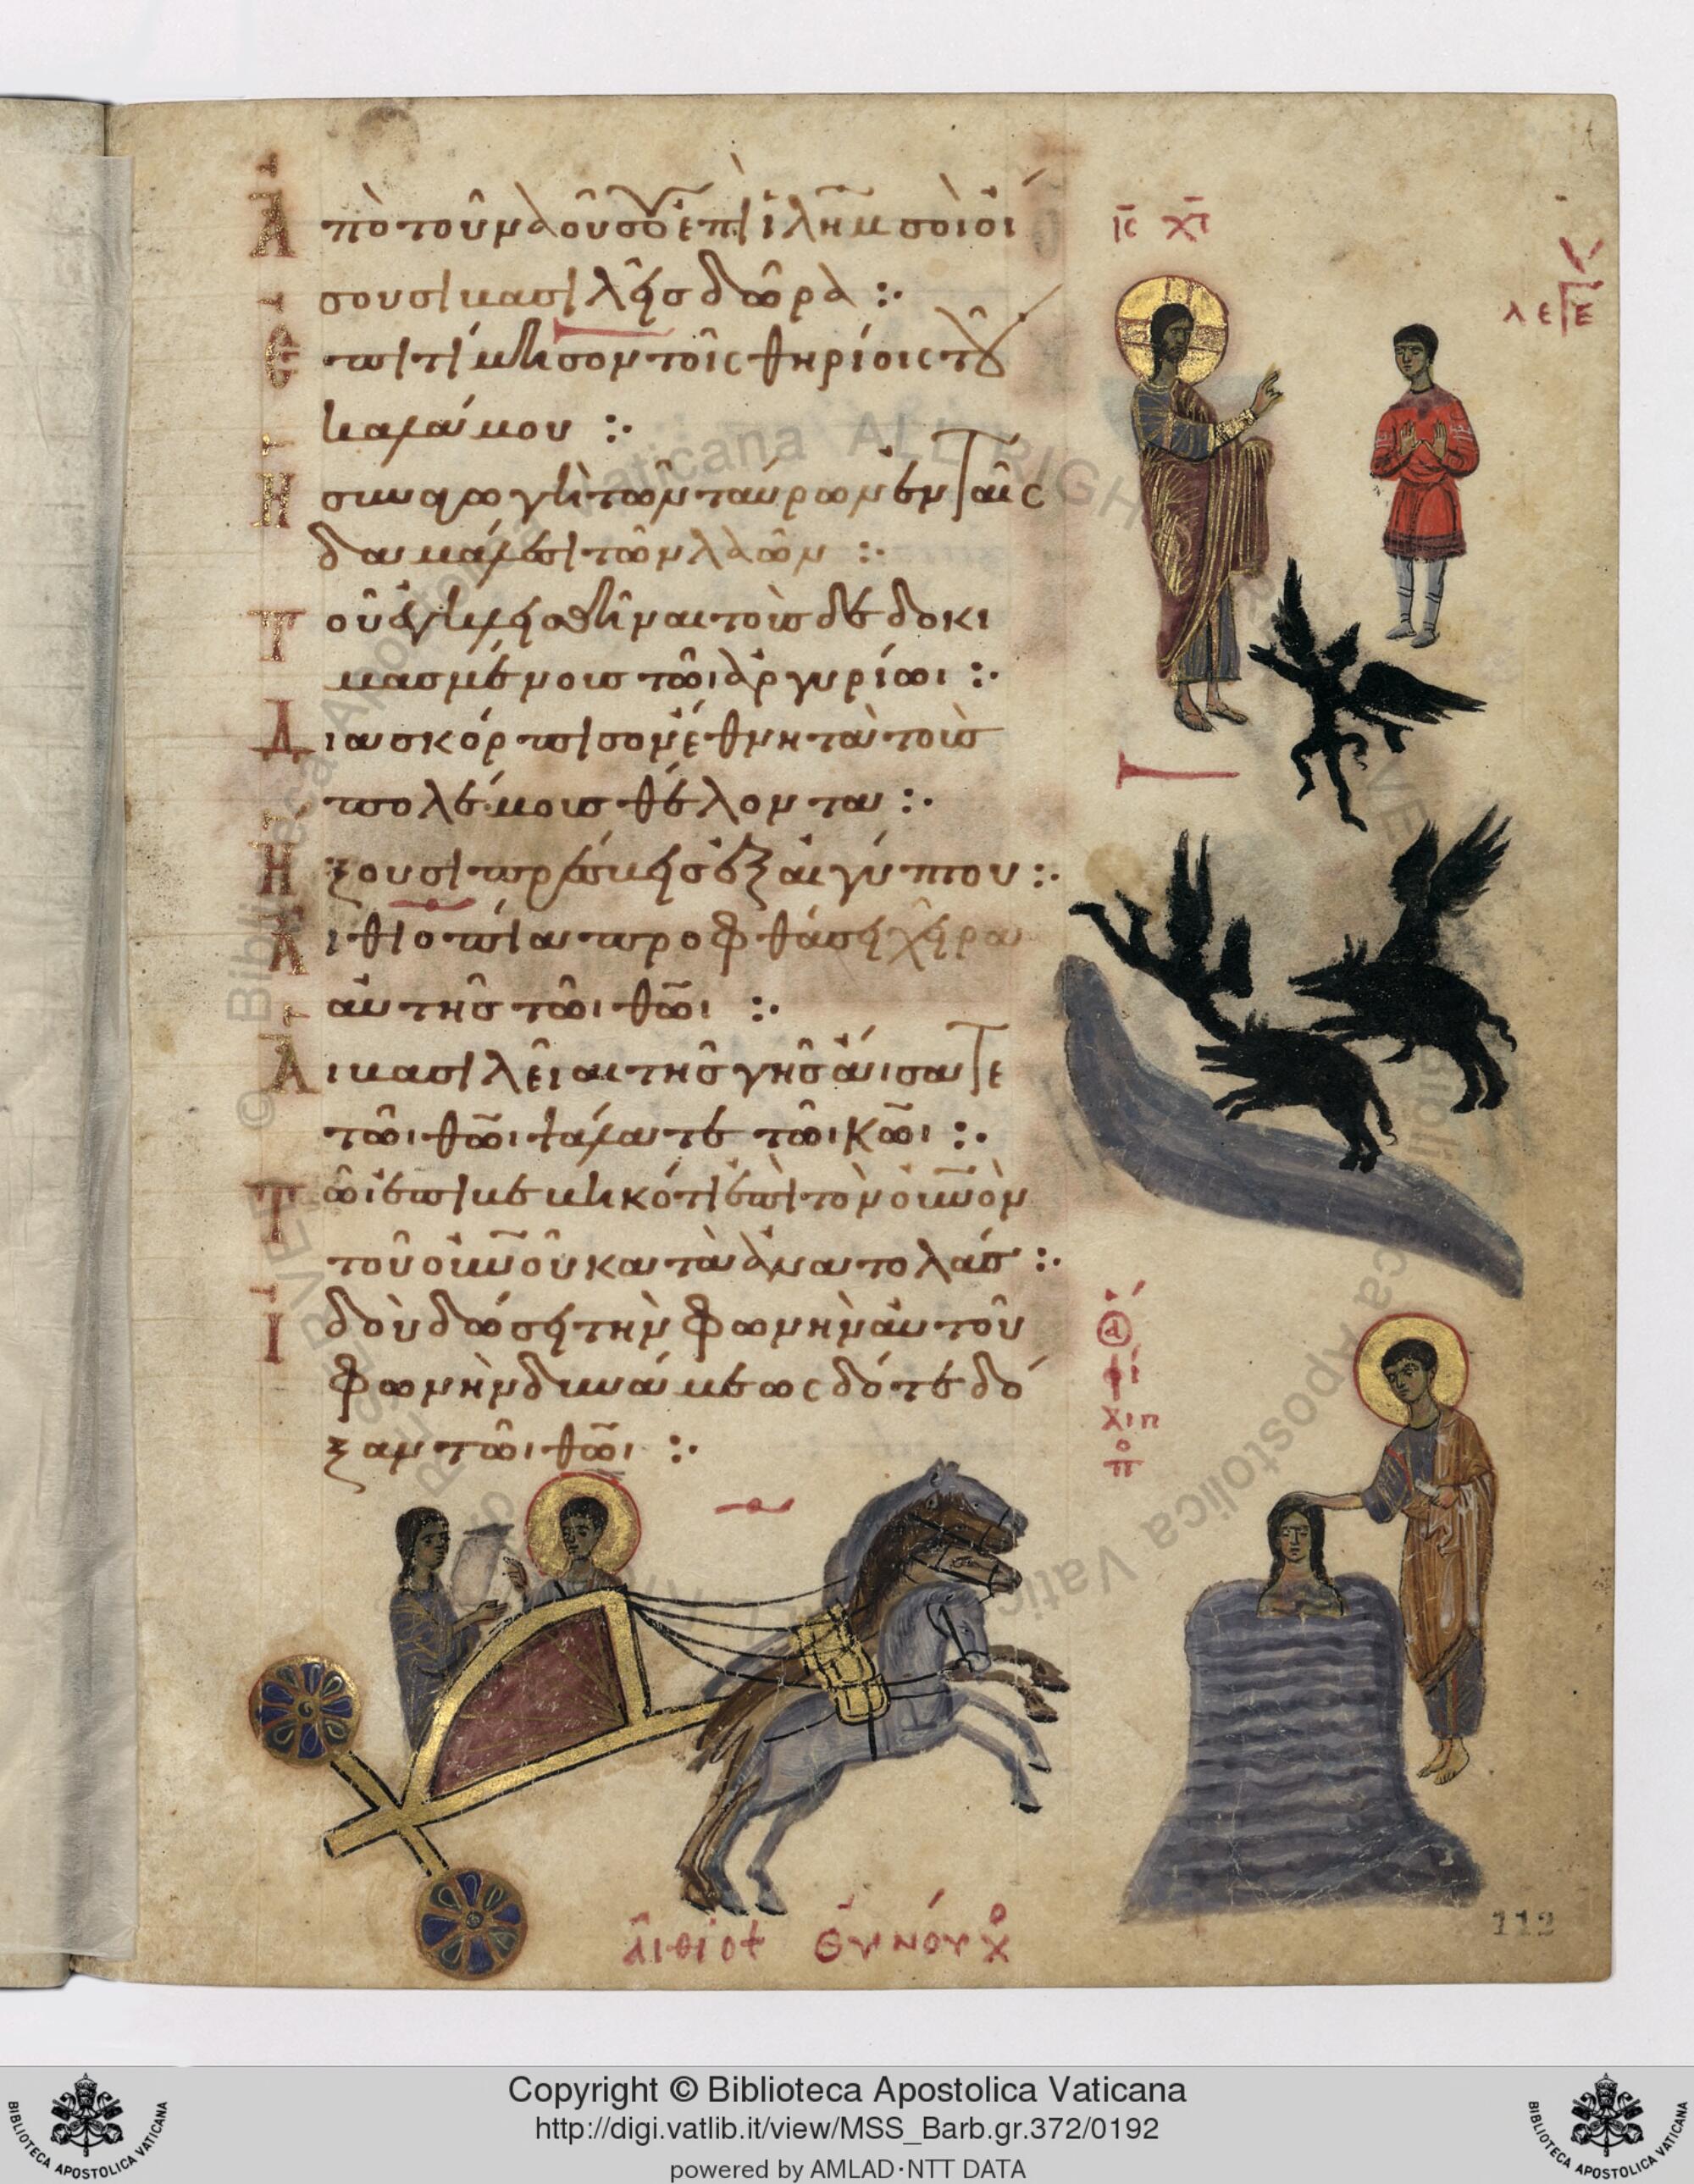 Ἀπὸ τοῦ ναοῦ σου ἐπὶ ἰλῆμ σοὶ οἴ
σουσι βασιλεῖς δῶρα :·
Ἐπιτίμησον τοῖς θηρίοις τοῦ
καλάμου :·
Ἡ συναγωγὴ τῶν ταύρων ἐν ταῖς
δαμάλεσι τῶν λαῶν :·
Τοῦ ἐγκλεισθῆναι τοὺς δεδοκι
μασμένους τῶι ἀργυρίωι :·
Διασκόρπισον ἔθνη τὰ τοὺς
πολέμους θέλοντα :·
Ἥξουσι πρέσβεις ἐξ αἰγύπτου :·
Αἰθιοπία προφθάσει χεῖρα
αὐτῆς τῶι θῶι :·
Αἱ βασιλεῖαι τῆς γῆς ἄισατε
τῶι θῶι ψάλατε τῶι κῶι :·
Τῶι ἐπιβεβηκότι ἐπὶ τὸν οὐνὸν
τοῦ οὐνοῦ κατὰ ἀνατολάς :·
Ἰδοὺ δώσει τὴν φωνὴν αὐτοῦ
φωνὴν δυνάμεως δότε δό
ξαν τῶι θῶι :·
ΙC ΧC
λεγε
ὁ ἅ
φί
λιπ
π
αἰθίοψ εὐνοῦχ
112
Copyright © Biblioteca Apostolica Vaticana
http://digi.vatlib.it/view/MSS_Barb.gr.372/0192
powered by AMLAD·NTT DATA
BIBLIOTECA APOSTOLICA VATICANA
BIBLIOTECA APOSTOLICA VATICANA